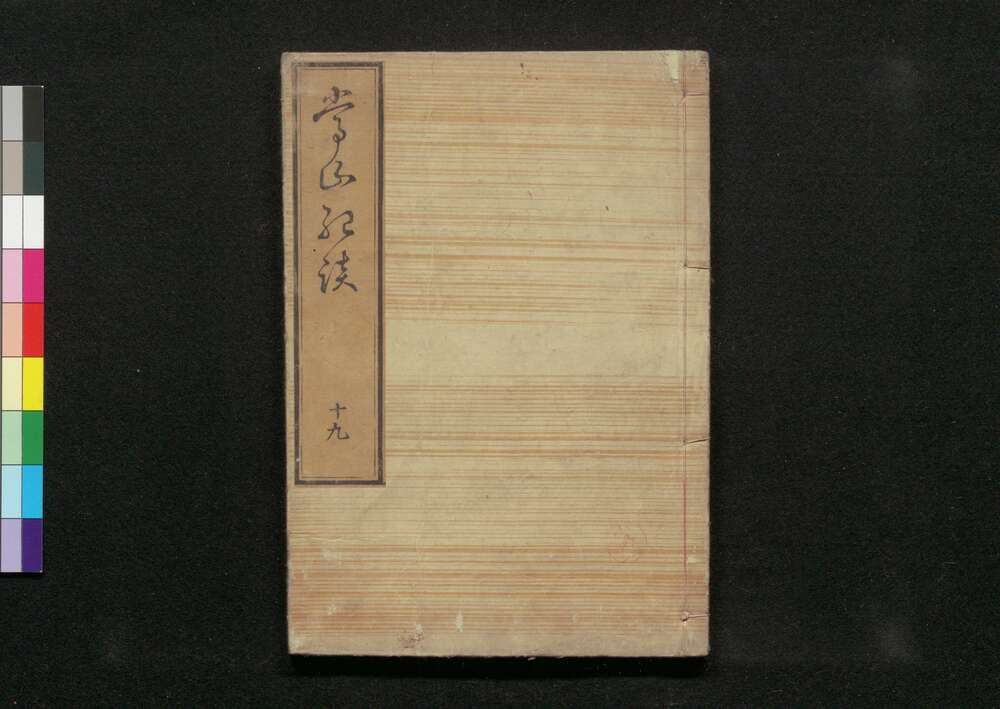 常山紀談
十九